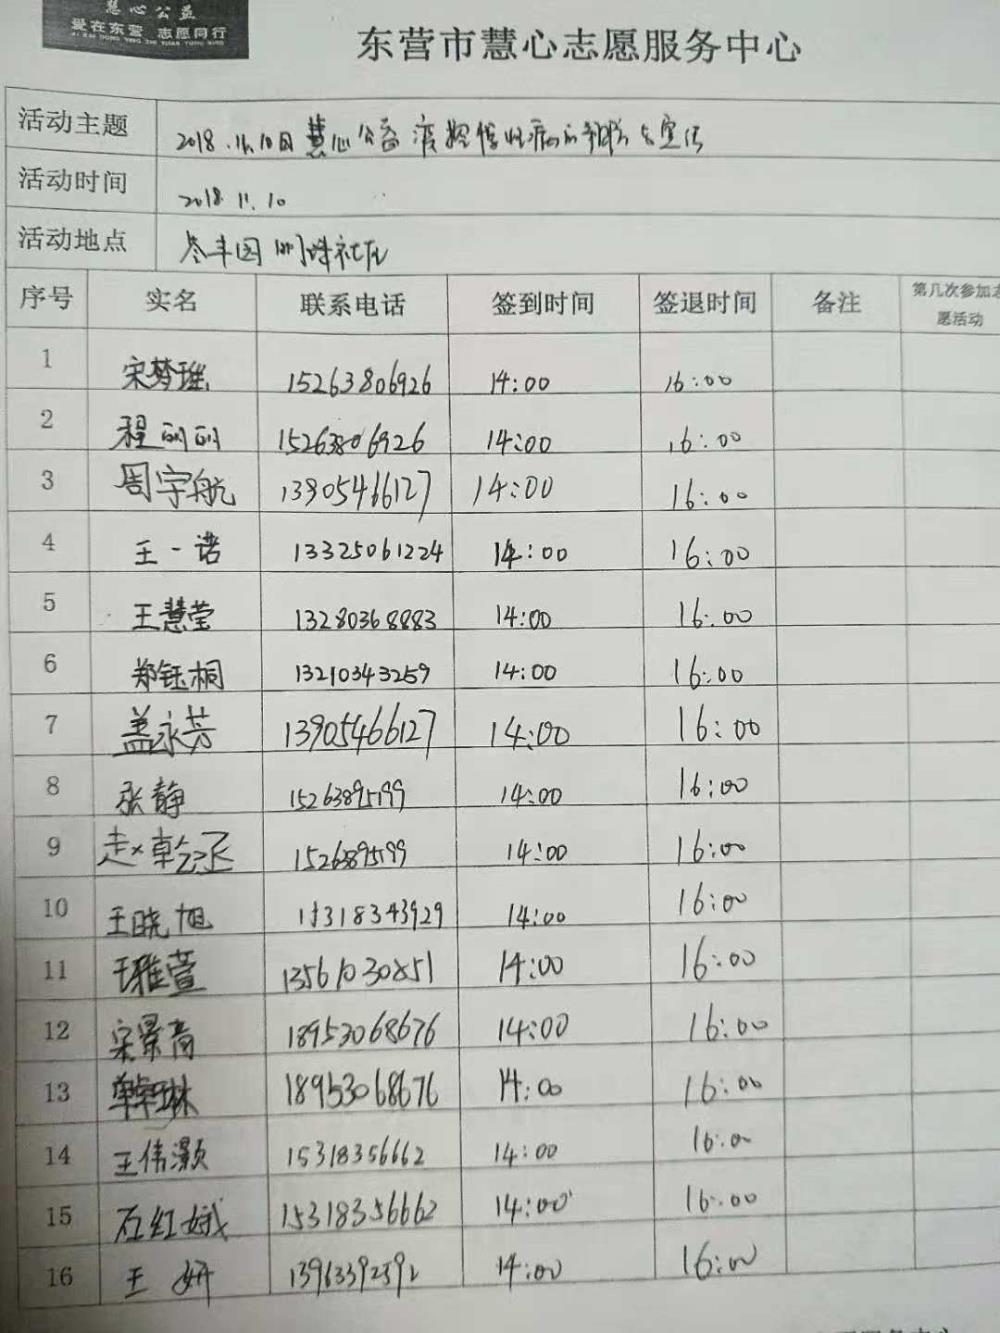 慧心公益
爱在东营 志愿同行
东营市慧心志愿服务中心
活动主题 2018.11.10日 慧心公益 慢性病的预防与宣传
活动时间 2018.11.10
活动地点 明珠社区
序号 实名 联系电话 签到时间 签退时间 备注 第几次参加志愿活动
1 宋梦 15263806926 14:00 16:00
2 程丽丽 15263806926 14:00 16:00
3 周宇航 13905466127 14:00 16:00
4 王一诺 13325061224 14:00 16:00
5 王慧莹 13280368883 14:00 16:00
6 郑钰桐 13210343259 14:00 16:00
7 盖永芳 13905466127 14:00 16:00
8 张静 15263895199 14:00 16:00
9 赵乾丞 1526895199 14:00 16:00
10 王晓旭 14:00 16:00
11 王雅萱 13561030851 14:00 16:00
12 宋景高 18953068676 14:00 16:00
13 18953068676 14:00 16:00
14 王伟灏 15318356662 14:00 16:00
15 石红娥 15318356662 14:00 16:00
16 王妍 14:00 16:00